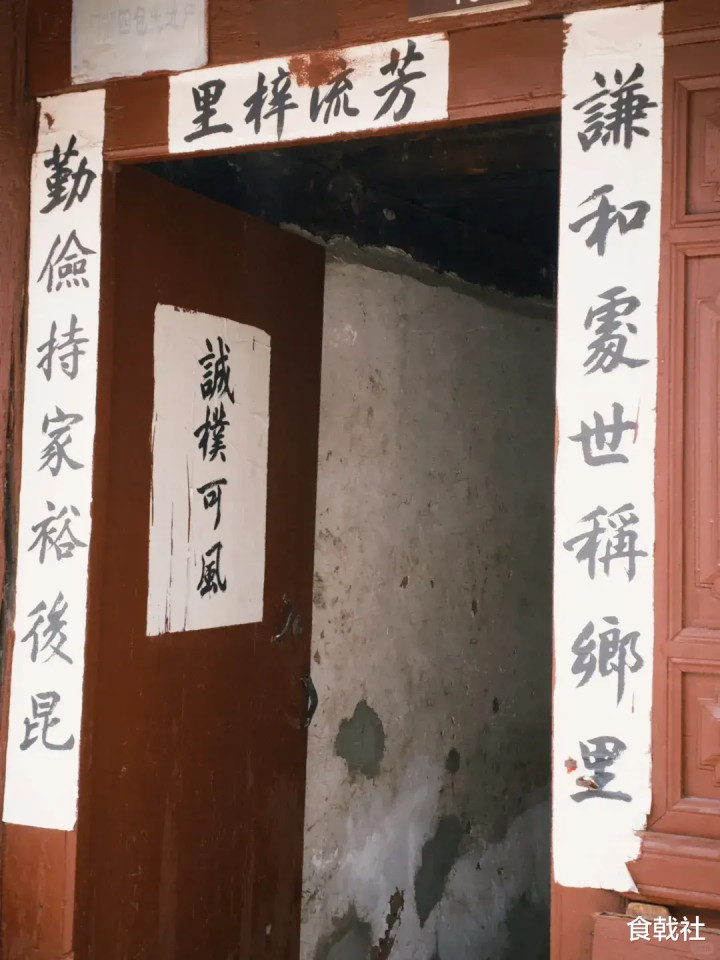 芳流梓里
謙和處世稱鄉里
勤儉持家裕後昆
誠樸可風
食戟社